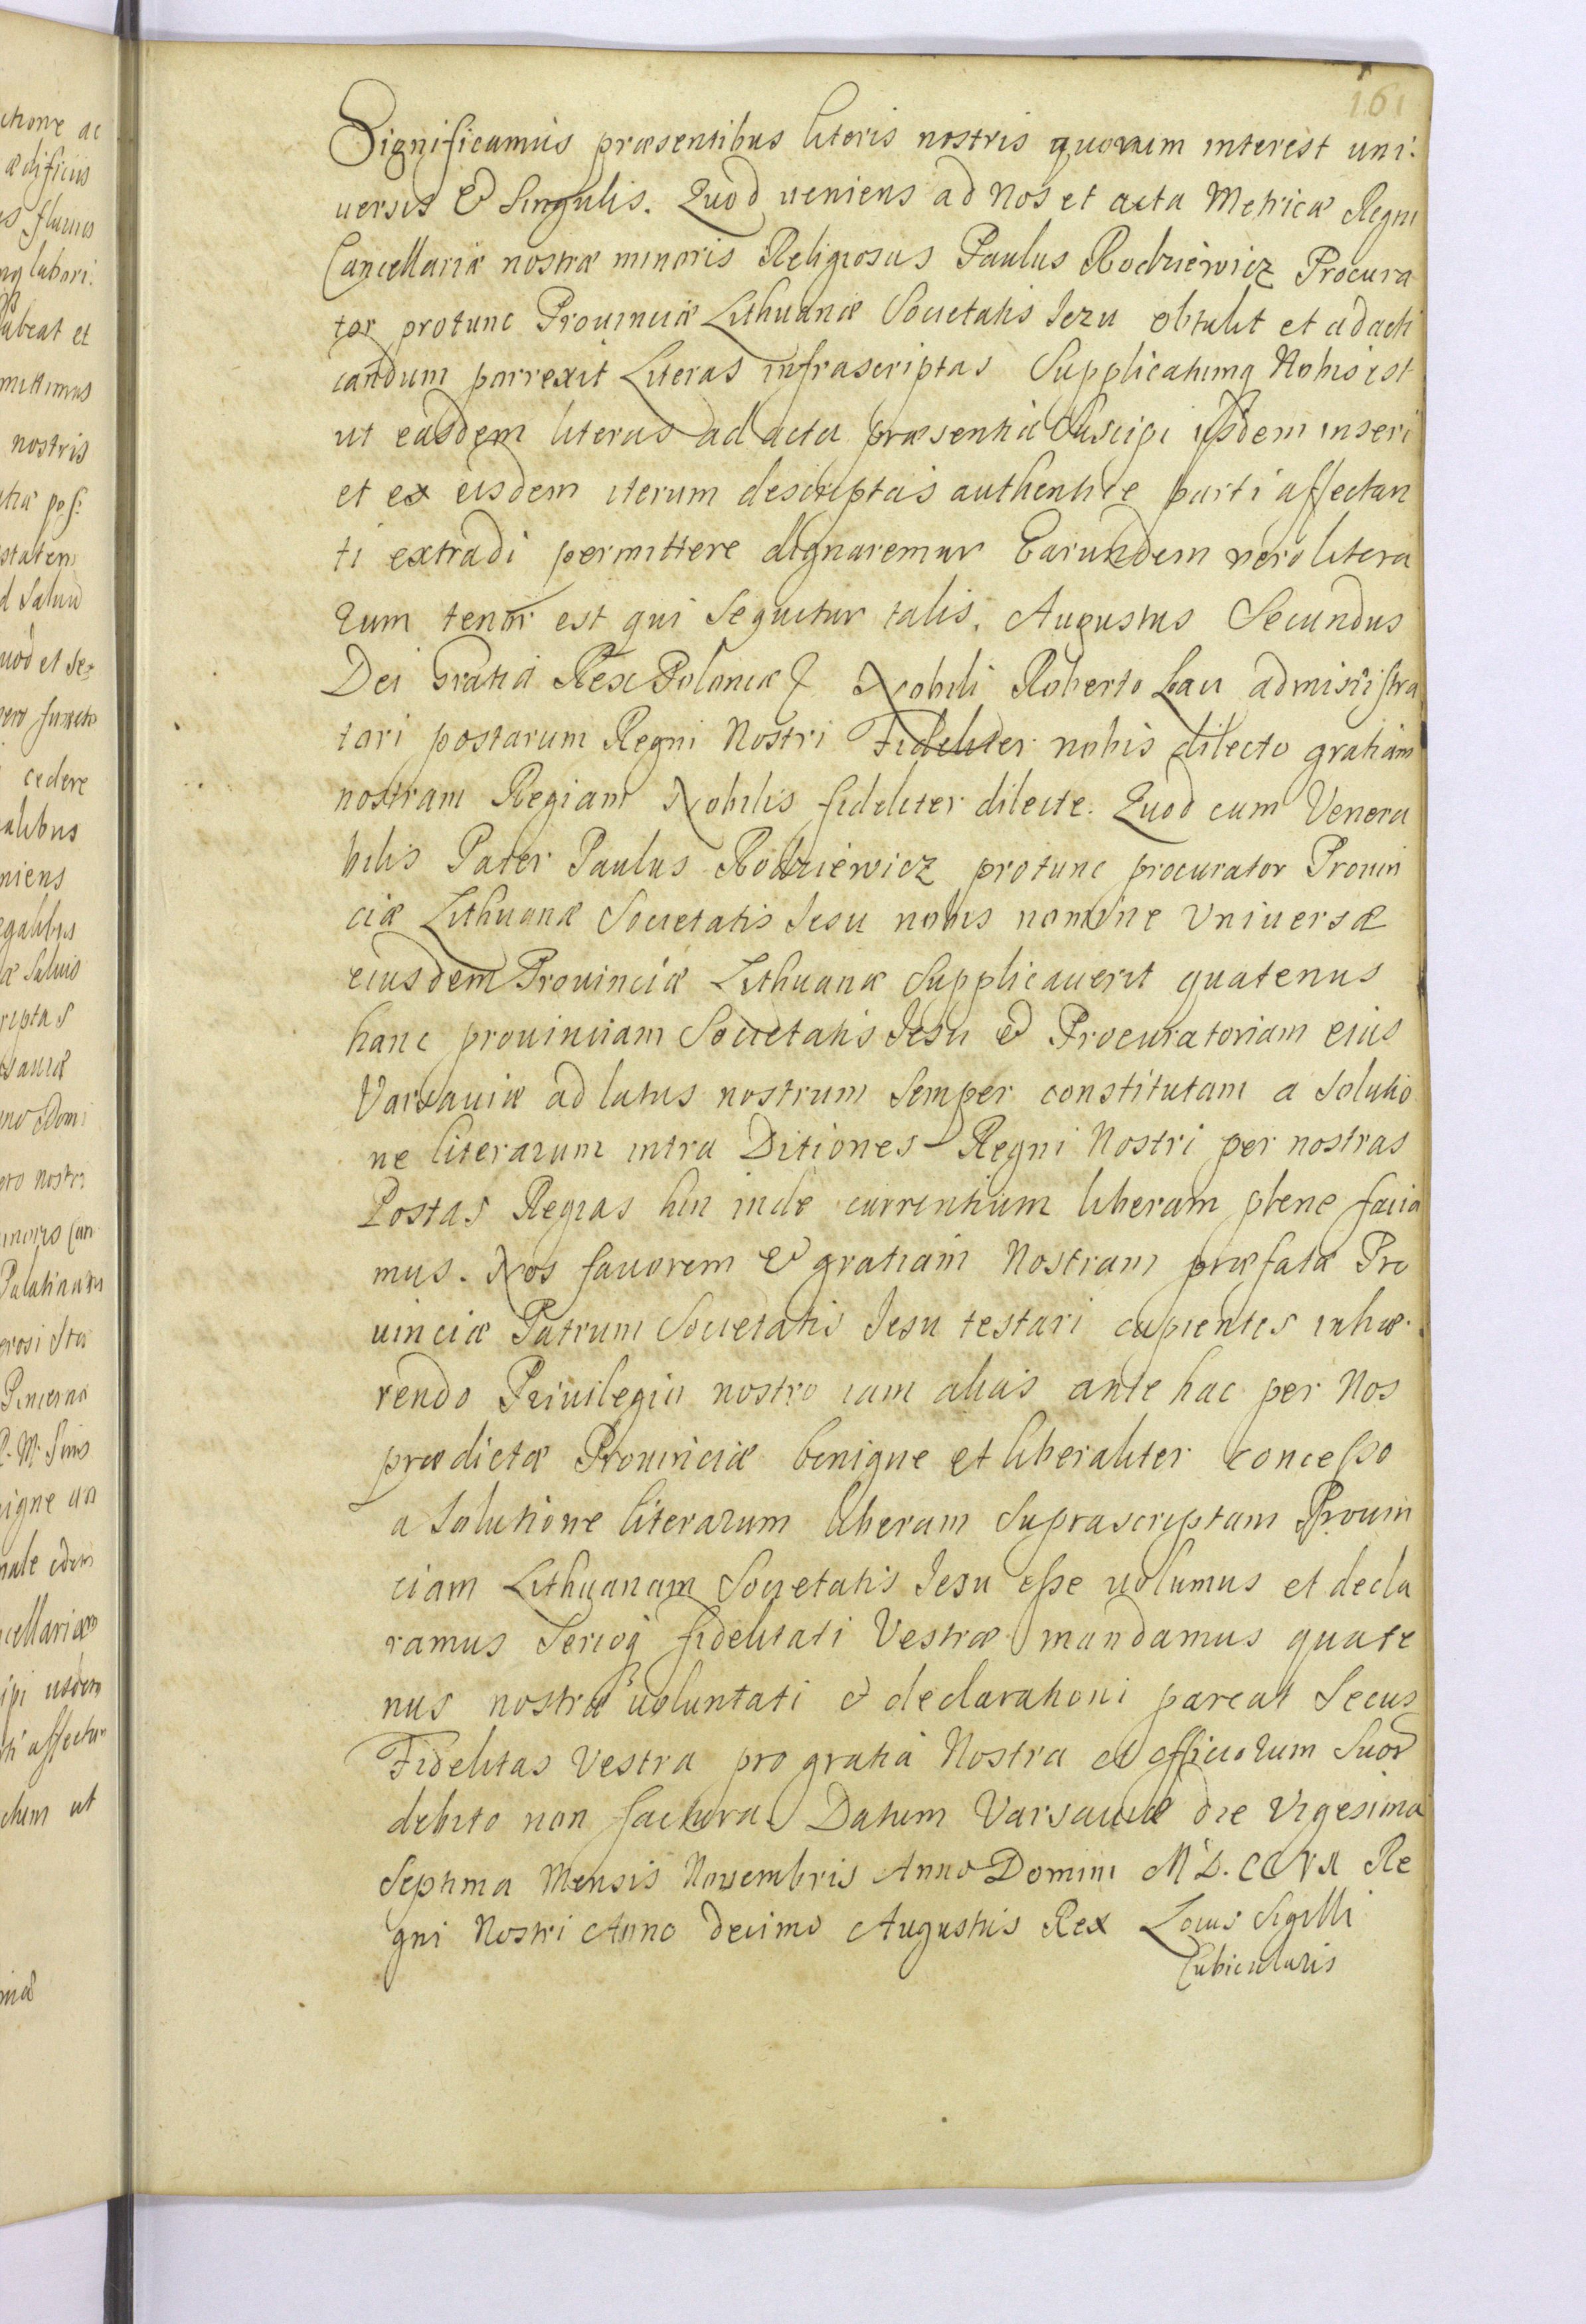 161
Significamus præsentibus literis nostris quorum interest uni:
uersis & Singulis. Quod ueniens ad Nos et acta Metricæ Regni
Cancellariæ nostræ minoris Religiosus Paulus Rodziewicz Procura
tor protunc Prouinciæ Lithuanæ Societatis Iezu obtulit et ad acti
candum porrexit Literas infrascriptas Supplicatumq Nobis est
ut easdem literas ad acta præsentia Suscipi ijsdem inseri
et ex eisdem iterum descriptas authentice parti affectan
ti extradi permittere dignaremur Earundem vero litera
rum tenor est qui Sequitur talis. Augustus Secundus
Dei Gratia Rex Poloniæ & Nobili Roberto Lau administra
tori postarum Regni Nostri Fideliter nobis dilecto gratiam
nostram Regiam Nobilis fideliter dilecte. Quod cum Venera
bilis Pater Paulus Rodziewicz protunc procurator Prouin
ciæ Lithuanæ Societatis Iesu nobis nomine Vniuersæ
eiusdem Prouinciæ Lithuanæ Supplicauerit quatenus
hanc prouinciam Societatis Iesu & Procuratoriam eius
Varsauiæ ad latus nostrum Semper constitutam a Solutio
ne literarum intra Ditiones Regni Nostri per nostras
Postas Regias hin inde currentium liberam plene facia
mus. Nos fauorem & gratiam Nostram præfatæ Pro
uinciæ Patrum Societatis Iesu testari cupientes inhæ
rendo Priuilegio nostro iam alias ante hac per Nos
prædictæ Prouinciæ benigne et liberaliter concesso
a Solutione literarum liberam Suprascriptam Prouin
ciam Lithuanam Societatis Iesu esse uolumus et decla
ramus Serioq fidelitati Vestræ mandamus quate
nus nostræ uoluntati & declarationi pareat Secus
Fidelitas Vestra pro gratia Nostra et officiorum Suor
debito non factura. Datum Varsauiæ die Vigesima
Septima Mensis Nouembris Anno Domini M D. CC VII Re
gni Nostri Anno decimo Augustus Rex Locus Sigilli
Cubicularis